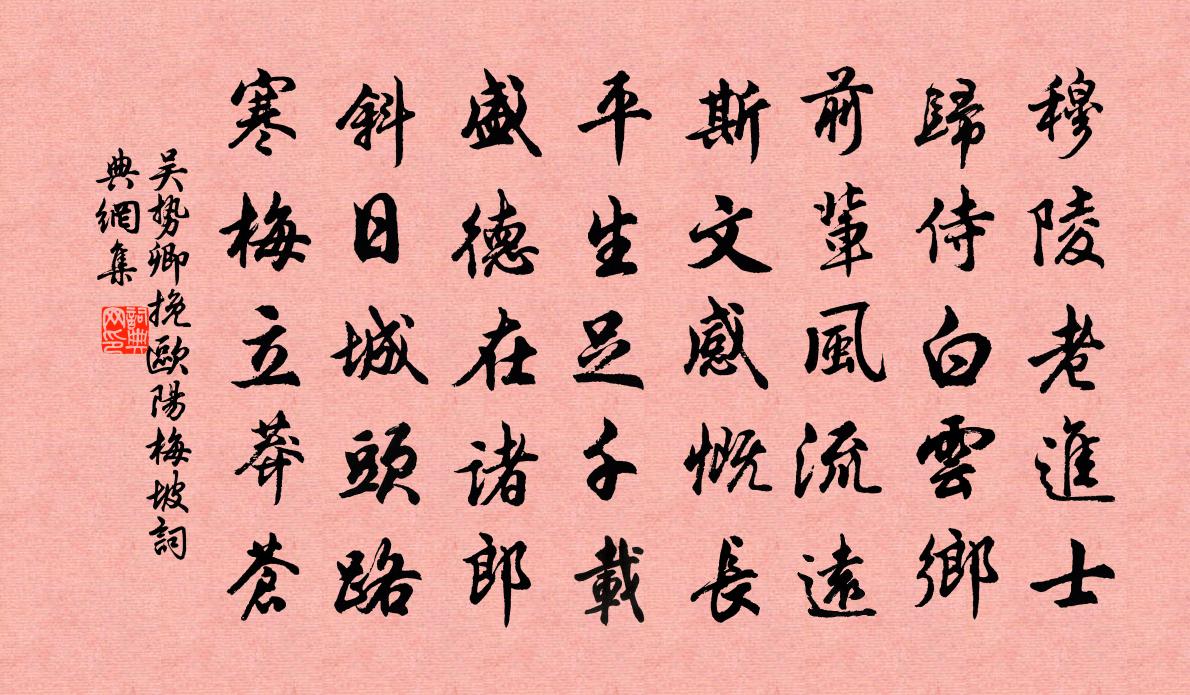 穆陵老進士
歸侍白雲鄉
前輩風流遠
斯文感慨長
平生足千載
盛德在諸郎
斜日城頭路
寒梅立莽蒼
吴势卿挽歐陽梅坡詞
典網集
詞典
网印